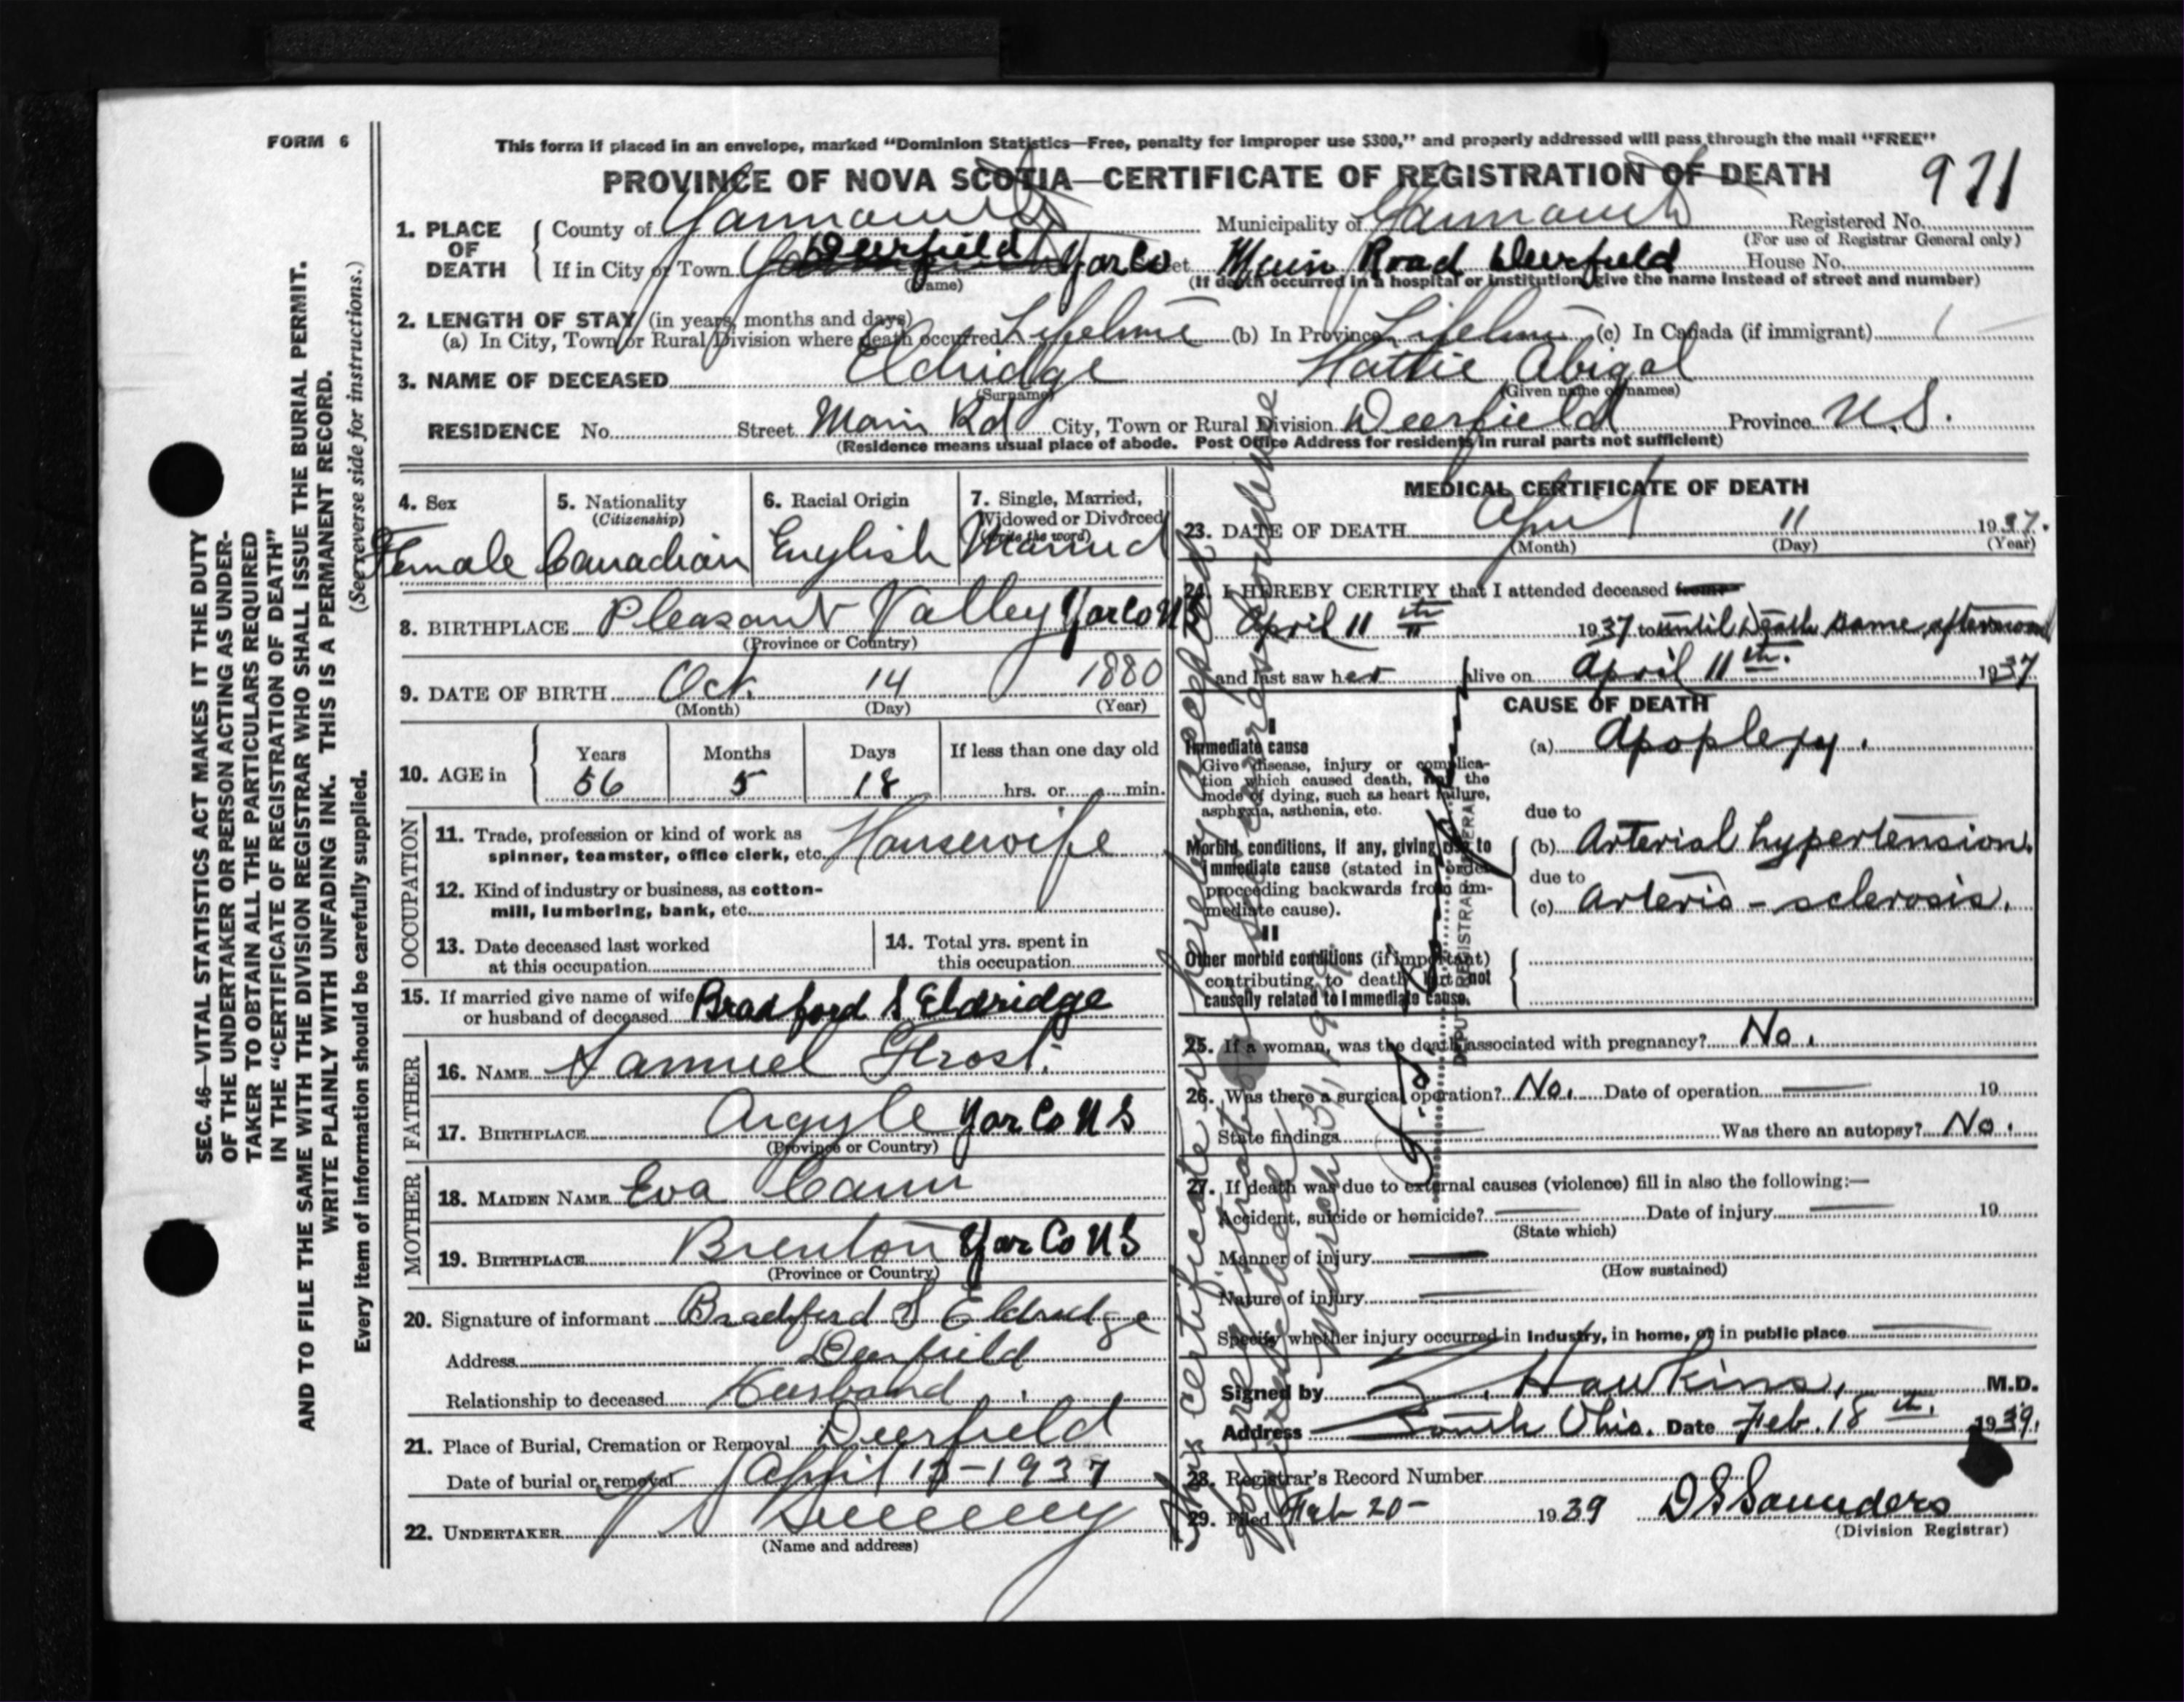 FORM 6
This form if placed in an envelope, marked “Dominion Statistics—Free, penalty for improper use $300,” and properly addressed will pass through the mail “FREE”
PROVINCE OF NOVA SCOTIA—CERTIFICATE OF REGISTRATION OF DEATH
971
1. PLACE OF DEATH
County of Yarmouth Municipality of Yarmouth Registered No.
(For use of Registrar General only)
If in City or Town Deerfield Yar Co Street Main Road Deerfield House No.
(Name) (If death occurred in a hospital or institution, give the name instead of street and number)
2. LENGTH OF STAY (in years, months and days)
(a) In City, Town or Rural Division where death occurred Lifetime (b) In Province Lifetime (c) In Canada (if immigrant)
3. NAME OF DECEASED Eldridge Hattie Abigal
(Surname) (Given name or names)
RESIDENCE No. Street Main Rd City, Town or Rural Division Deerfield Province N.S.
(Residence means usual place of abode. Post Office Address for residents in rural parts not sufficient)
4. Sex
Female
5. Nationality
(Citizenship)
Canadian
6. Racial Origin
English
7. Single, Married,
Widowed or Divorced
(Write the word)
Married
8. BIRTHPLACE Pleasant Valley Yar Co NS
(Province or Country)
9. DATE OF BIRTH Oct. 14 1880
(Month) (Day) (Year)
10. AGE in
Years Months Days If less than one day old
56 5 18 hrs. or min.
OCCUPATION
11. Trade, profession or kind of work as
spinner, teamster, office clerk, etc. Housewife
12. Kind of industry or business, as cotton-
mill, lumbering, bank, etc.
13. Date deceased last worked
at this occupation
14. Total yrs. spent in
this occupation
15. If married give name of wife
or husband of deceased Bradford S Eldridge
FATHER
16. NAME Samuel Frost.
17. BIRTHPLACE Argyle Yar Co NS
(Province or Country)
MOTHER
18. MAIDEN NAME Eva Cann
19. BIRTHPLACE Brenton Yar Co NS
(Province or Country)
20. Signature of informant Bradford S Eldridge
Address Deerfield
Relationship to deceased Husband
21. Place of Burial, Cremation or Removal Deerfield
Date of burial or removal April 13-1937
22. UNDERTAKER V S Sweeney
(Name and address)
MEDICAL CERTIFICATE OF DEATH
23. DATE OF DEATH April 11 1937.
(Month) (Day) (Year)
24. I HEREBY CERTIFY that I attended deceased from
April 11th 1937 to until Death same afternoon
and last saw her alive on April 11th. 1937
CAUSE OF DEATH
I
Immediate cause
Give disease, injury or complica-
tion which caused death, not the
mode of dying, such as heart failure,
asphyxia, asthenia, etc.
(a) Apoplexy.
due to
Morbid conditions, if any, giving rise to
immediate cause (stated in order
proceeding backwards from im-
mediate cause).
(b) Arterial hypertension.
due to
(c) Arterio-sclerosis.
II
Other morbid conditions (if important)
contributing to death but not
causally related to immediate cause.
25. If a woman, was the death associated with pregnancy? No.
26. Was there a surgical operation? No. Date of operation 19
State findings Was there an autopsy? No.
27. If death was due to external causes (violence) fill in also the following:—
Accident, suicide or homicide? Date of injury 19
(State which)
Manner of injury
(How sustained)
Nature of injury
Specify whether injury occurred in industry, in home, or in public place
Signed by Z. Hawkins, M.D.
Address South Ohio. Date Feb. 18th. 1939.
28. Registrar's Record Number
29. Filed Feb 20- 1939 D S Saunders
(Division Registrar)
This certificate is hereby accepted
March 31, 1939
DEPUTY REGISTRAR GENERAL
SEC. 46—VITAL STATISTICS ACT MAKES IT THE DUTY
OF THE UNDERTAKER OR PERSON ACTING AS UNDER-
TAKER TO OBTAIN ALL THE PARTICULARS REQUIRED
IN THE “CERTIFICATE OF REGISTRATION OF DEATH”
AND TO FILE THE SAME WITH THE DIVISION REGISTRAR WHO SHALL ISSUE THE BURIAL PERMIT.
WRITE PLAINLY WITH UNFADING INK. THIS IS A PERMANENT RECORD.
Every item of information should be carefully supplied. (See reverse side for instructions.)